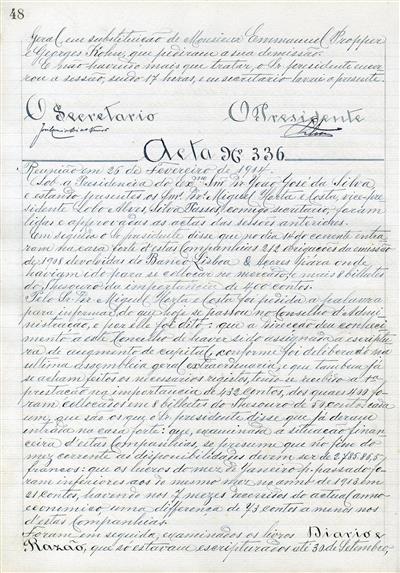 48
Geral em substituição de Monsieur Emmanuel Propper
e Georges Kohn, que pediram a sua demissão.
E não havendo mais que tratar, o Sr. presidente encer
rou a sessão, sendo 17 horas, e eu secretario lavrei a presente.
O Secretario O Presidente
Acta Nº 336
Reunião em 25 de Fevereiro de 1914.
Sob a Presidencia do Exmo Snr. Dr. João José da Silva
e estando presentes os Snrs. Dr. Miguel Horta e Costa, vice-pre
sidente e Alves, Silva Passos, comigo secretario, foram
lidas e approvadas as actas das sessões anteriores.
Em seguida o Sr. presidente disse que no dia 14 do corrente entra
ram na casa forte d'esta Companhia 212 obrigações da emissão
de 1908 devolvidas do Banco Lisboa & Açores para onde
haviam ido para se collocar no mercado, e mais 8 bilhetes
do Thesouro da importancia de 400 contos.
Pelo Sr. Dr. Miguel Horta e Costa foi pedida a palavra
para informar do que hoje se passou no Conselho d'Admi-
nistração, e por elle foi dito: que a Direcção deu conheci
mento a este Concelho de haver sido assignada a escriptu
ra de augmento de capital, conforme foi deliberado na
ultima assembleia geral extraordinaria, e que tambem já
se acham feitos os necessarios registos, tendo-se recebido a 1ª
prestação na importancia de 432 contos, dos quaes 400
foram collocados em 8 bilhetes do Thesouro de 50 contos cada
um, que são os que o Sr. presidente disse que já deram
entrada na casa forte: que, examinada a situação finan
ceira d'esta Companhia, se presume que no fim do
mez corrente as disponibilidades devem ser de 2.785.865
francos: que os lucros do mez de Janeiro p. passado fo
ram inferiores aos do mesmo mez no anno de 1913 em
21 contos, havendo nos 7 mezes decorridos do actual anno
economico, uma differença de 73 contos a menos nos
d'esta Companhia.
Foram em seguida, examinados os livros Diario e
Razão, que só estavam escripturados até 30 de Setembro,